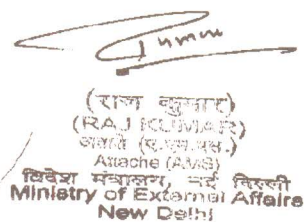 Kumar
(राज कुमार)
(RAJ KUMAR)
Attache (AMS)
विदेश मंत्रालय, नई दिल्ली
Ministry of External Affairs
New Delhi